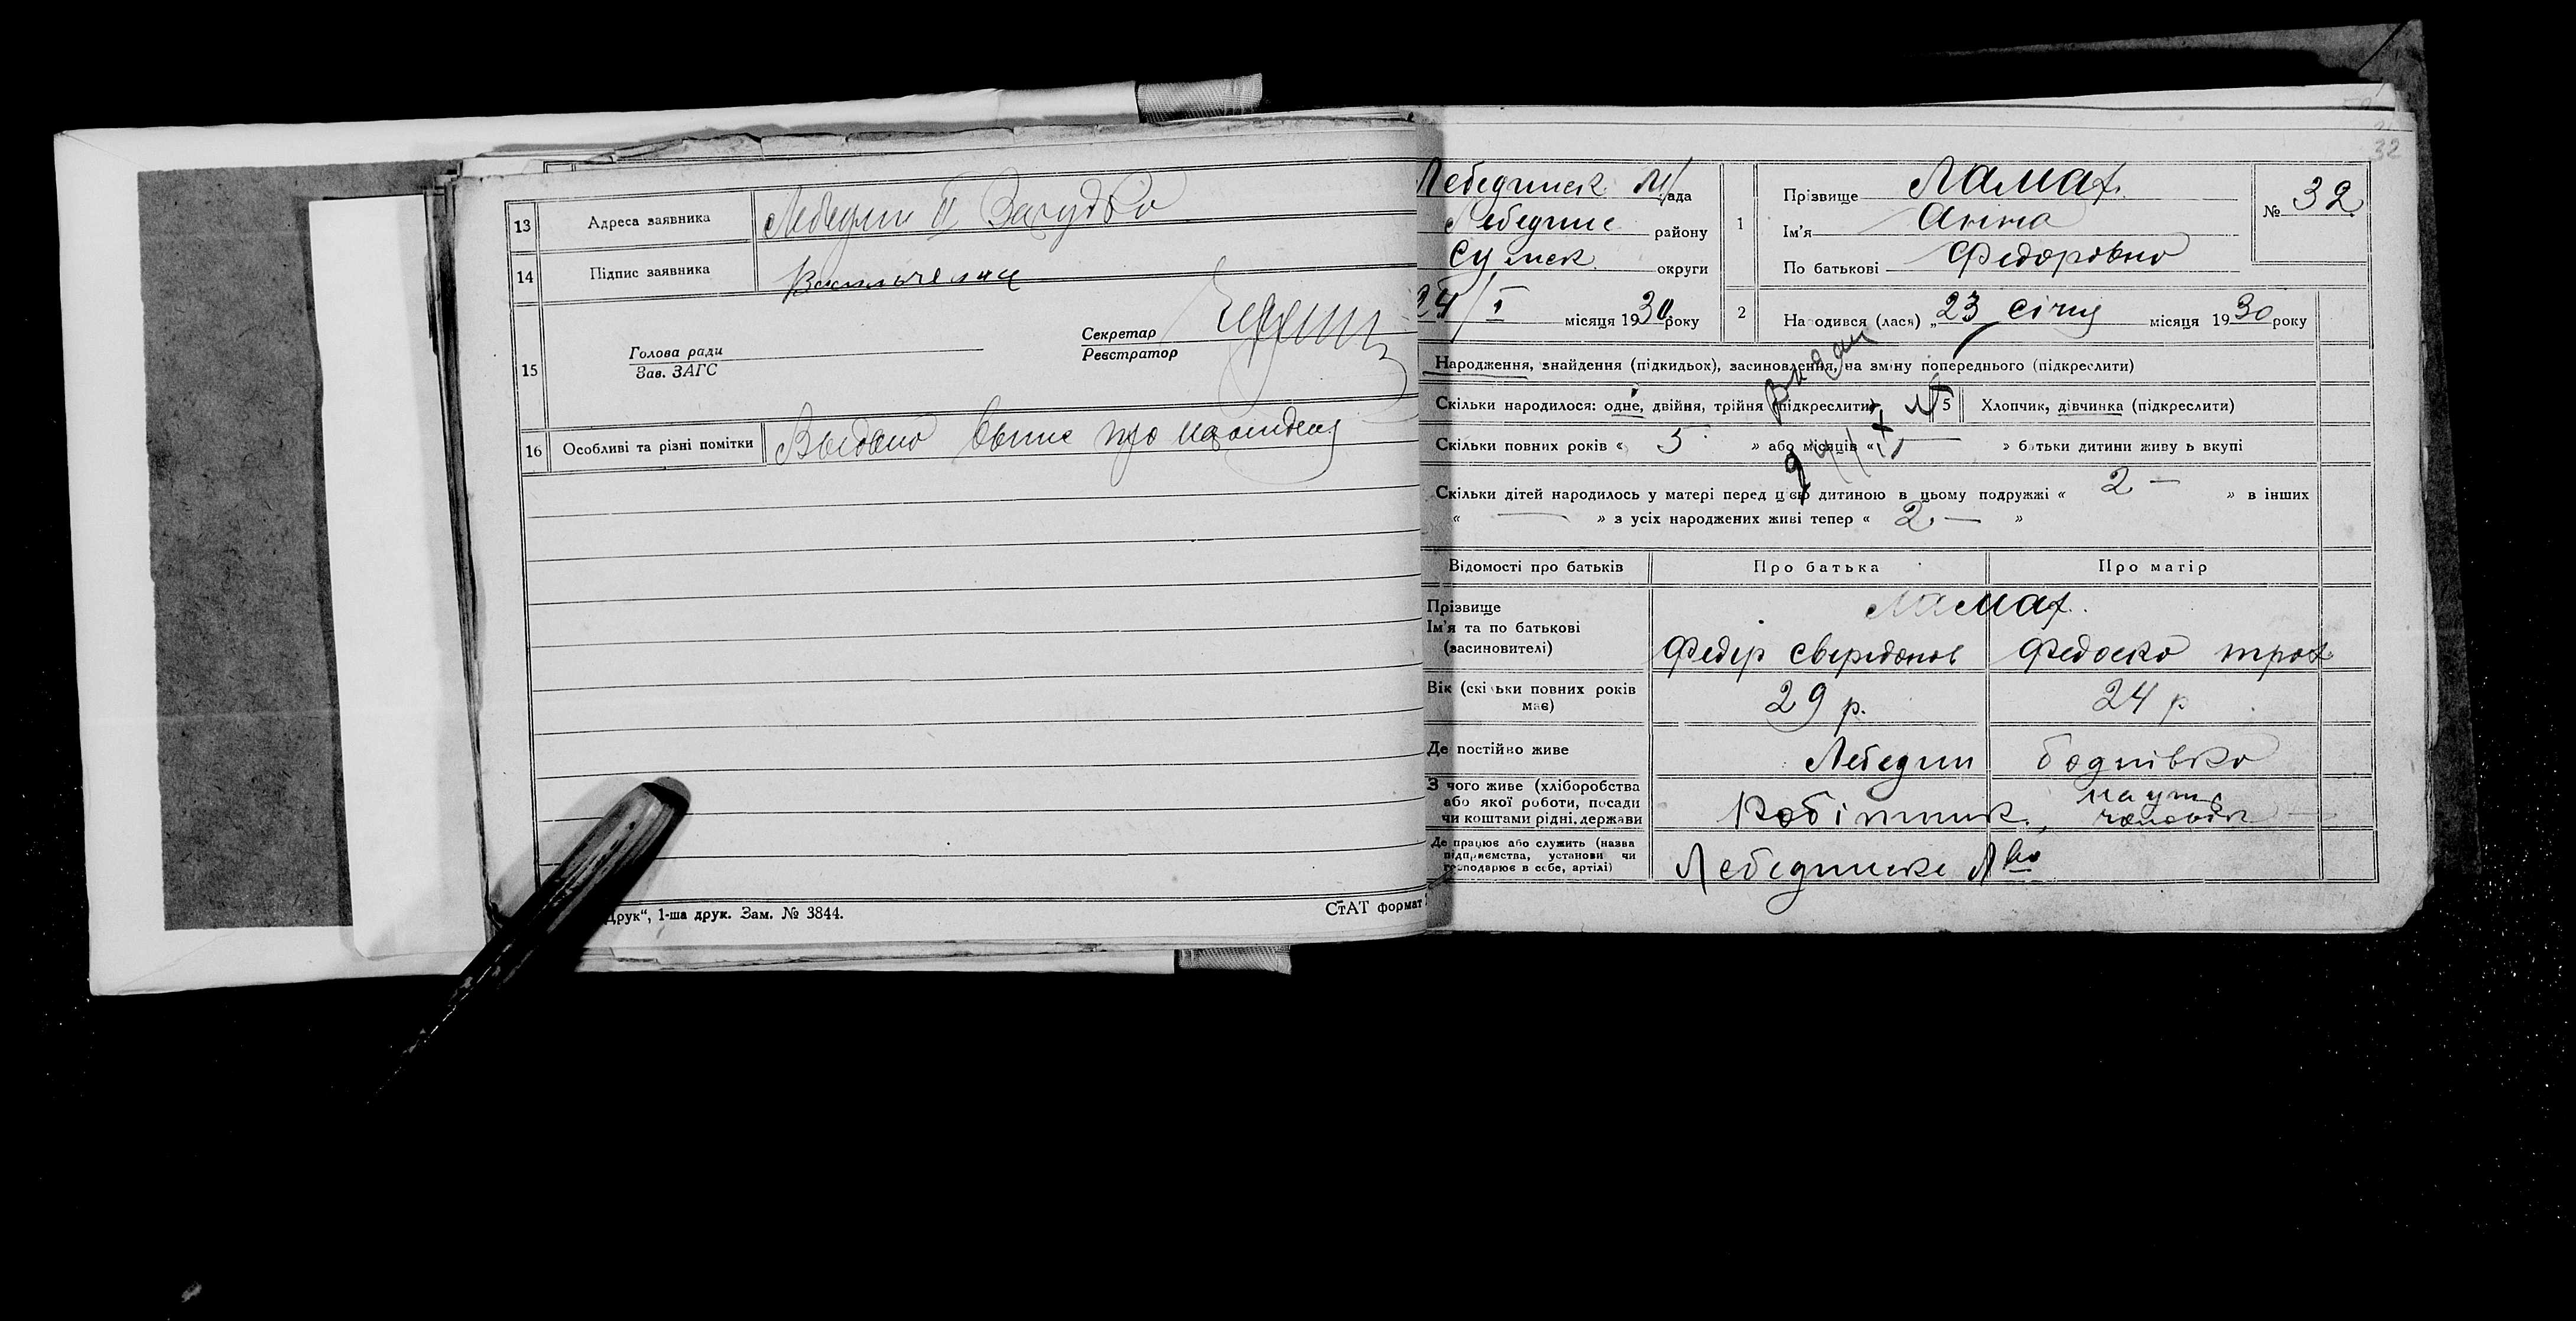 13 Адреса заявника Лебедин II
14 Підпис заявника
15 Голова ради
Зав. ЗАГС
Секретар
Реєстратор
16 Особливі та різні помітки Видано випис про народження
Друк“, 1-ша друк. Зам. № 3844.
СтАТ формат
32
Лебединск М/рада
Лебединс району
Сумск округи
24/I місяця 1930 року
1 Прізвище Ламах
Ім'я Анна
По батькові Федоровна
№ 32
2 Народився (лася) „23 січня місяця 1930 року
Народження, знайдення (підкидьок), засиновлення, на зміну попереднього (підкреслити)
Скільки народилося: одне, двійня, трійня (підкреслити)
5 Хлопчик, дівчинка (підкреслити)
Скільки повних років « 5 » або місяців « » батьки дитини живуть вкупі
Скільки дітей народилось у матері перед цією дитиною в цьому подружжі « 2 — » в інших
« — » з усіх народжених живі тепер « 2 — »
Відомості про батьків Про батька Про матір
Прізвище
Ім'я та по батькові
(засиновителі)
Ламах
Федір Свиридонов Федоска Троф
Вік (скільки повних років має) 29 р. 24 р
Де постійно живе Лебедин
З чого живе (хліборобства
або якої роботи, посади
чи коштами рідні, держави
Робітник,
Де працює або служить (назва
підприємства, установи чи
господарює в себе, артілі)
Лебединске